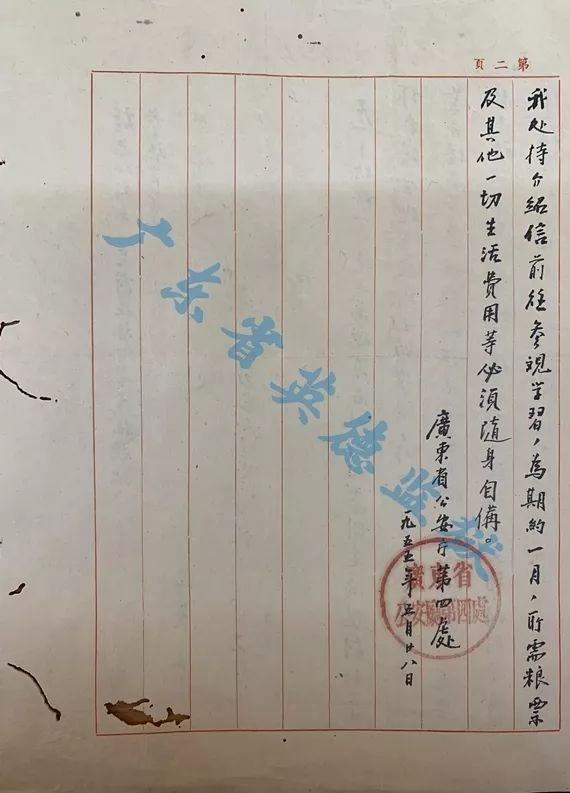 第二頁
我处持介紹信前往参观学習，為期約一月，所需粮票
及其他一切生活費用等必須随身自備。
廣東省公安厅第四處
一九五五年五月廿八日
廣東省
公安廳第四處
广东省英德监狱